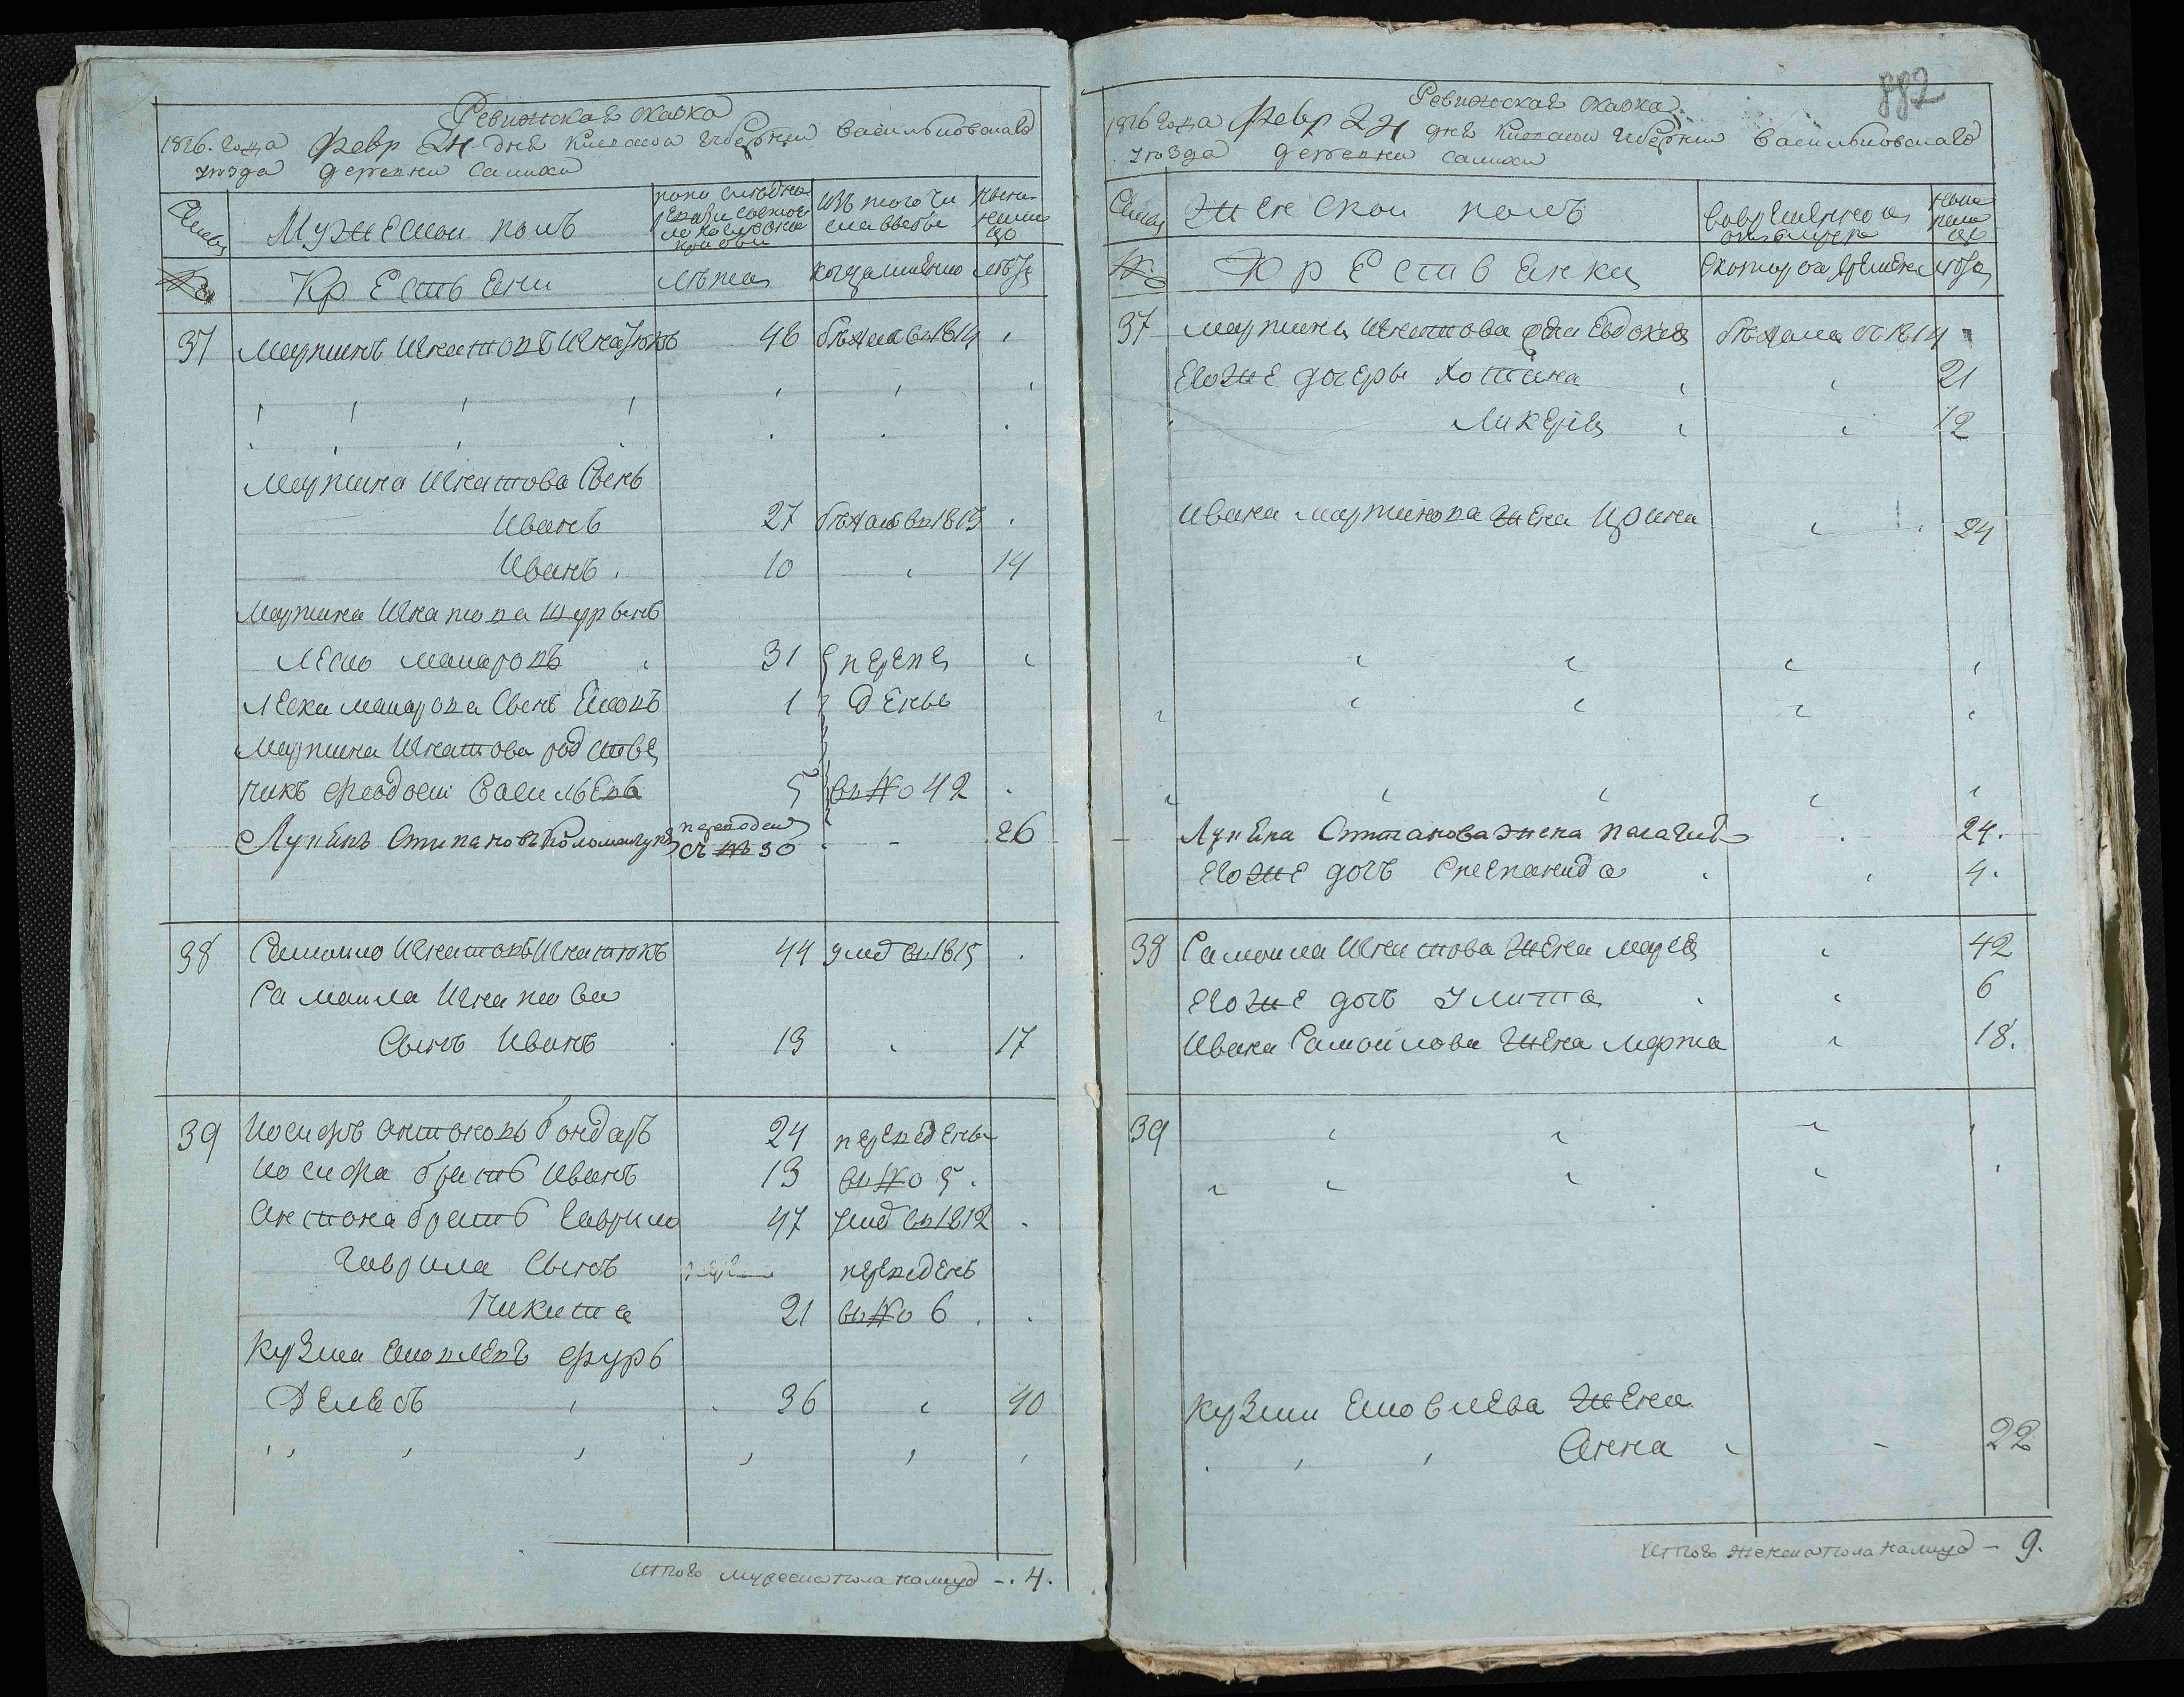 Ревижская скаска
1816. года Февр 24 дня Киевской губернии васильковского
уезда деревни Салихи
Семьи
Мужеской полъ
по последней ревизии состояло и после оной прибыло
Изъ того числа выбыло
Ныне на лицо
№
Крестьяни
лета
когда именно
лета
37 Мартинъ Игнатовъ Игнатюкъ 46 бежалъ в 1814
Мартина Игнатова Сынъ
Иванъ 27 бежалъ в 1813
Иванъ. 10 14
Мартина Игнатова шурынъ
Леско Макаровъ 31 переве
Леска Макарова Сынъ 1 дены
Мартина Игнатова родстве
никъ Феодосей Васильевъ 5 въ №о 42
Лупынъ Стипановъ Коломыецъ переведен съ № 30 26
38 Самоило Игнатовъ Игнатюкъ 44 умер въ 1815
Самаила Игнатова
Сынъ Иванъ 13 17
39 Иосифъ Антоновъ бондаръ 24 переведены
Иосифа братъ Иванъ 13 въ №о 5.
Антона братъ Гаврило 47 умер въ 1812
Гаврила Сынъ переведенъ
Никита 21 въ №о 6
Кузма Яковлевъ
36 40
Итого мужеска пола налицо - 4.
882
Ревижская скаска
1816 года Февр 24 дня Киевской губернии васильковского
уезда деревни Салихи
Семьи
Женской полъ
Во временной отлучке
Ныне на лицо
№
Крестьянки
Скоторого времени
лета
37 Мартина Игнатова жена Евдокия бежала в 1814
Егоже дочеры Хотина 21
Ликерия 12
Ивана Мартинова жена Ирина 24
Лупына Степанова жена Палагия 24.
Егоже дочъ Степанида 4.
38 Самоила Игнатова жена Мария 42
Егоже дочъ Улита 6
Ивана Самойлова жена Марта 18.
39
Кузми Яковлева жена
Анна 22
Итого женска пола налицо - 9.